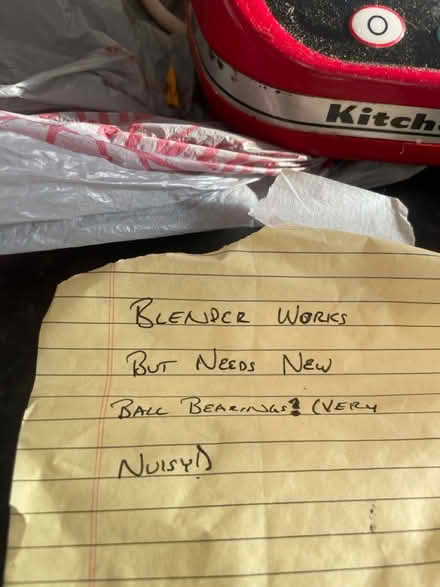 O
Kitch
BLENDER WORKS
BUT NEEDS NEW
BALL BEARINGS? (VERY
NOISY!)